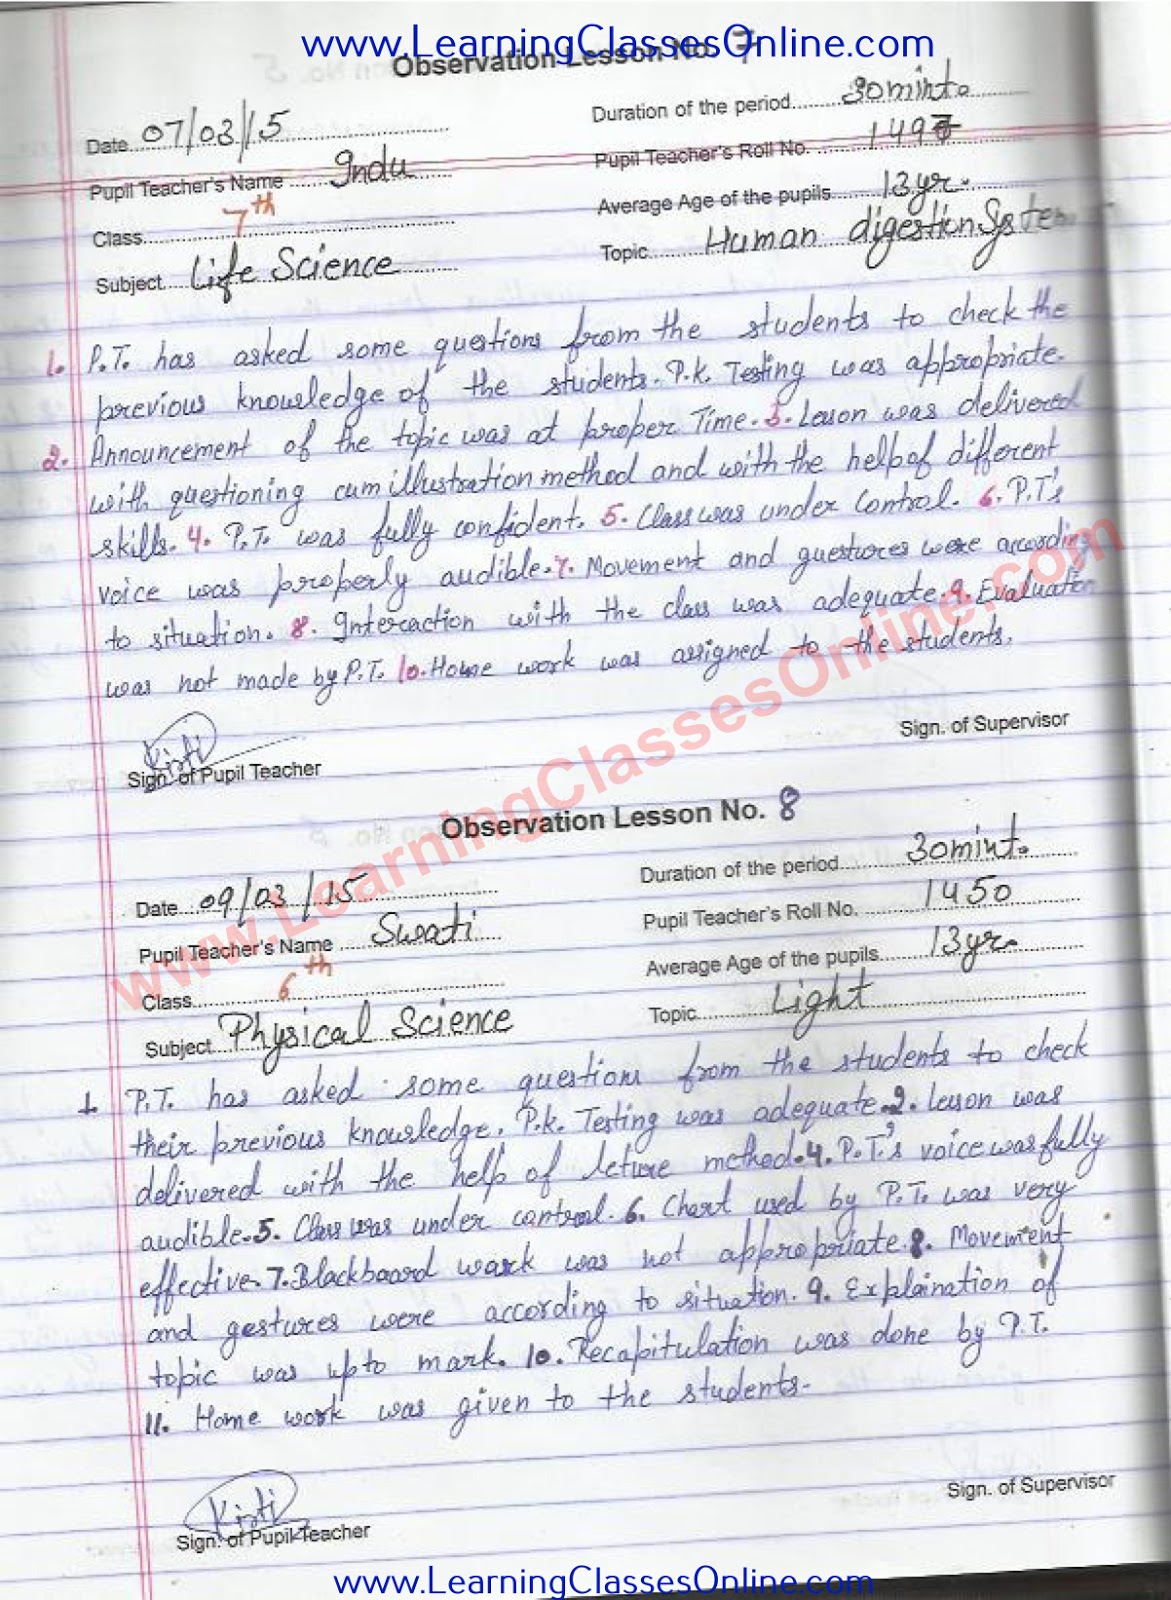 www.LearningClassesOnline.com
Observation Lesson No. 7
Date 07/03/15
Duration of the period 30mint.
Pupil Teacher's Name Indu
Pupil Teacher's Roll No.
Class 7th
Average Age of the pupils 13yr.
Subject Life Science
Topic Human digestion System
1. P.T. has asked some questions from the students to check the
previous knowledge of the students. P.k. Testing was appropriate.
2. Announcement of the topic was at proper Time. 3. Lesson was delivered
with questioning cum illustration method and with the help of different
skills. 4. P.T. was fully confident. 5. Class was under control. 6. P.T's
voice was properly audible. 7. Movement and guestures were according
to situation. 8. Interaction with the class was adequate. 9. Evaluation
was not made by P.T. 10. Home work was assigned to the students.
Kirti
Sign. of Pupil Teacher
Sign. of Supervisor
www.LearningClassesOnline.com
Observation Lesson No. 8
Date 09/03/15
Duration of the period 30mint.
Pupil Teacher's Name Swati
Pupil Teacher's Roll No. 1450
Class 6th
Average Age of the pupils 13yr.
Subject Physical Science
Topic Light
1. P.T. has asked some questions from the students to check
their previous knowledge. P.k. Testing was adequate. 2. Lesson was
delivered with the help of leture method. 4. P.T.'s voice was fully
audible. 5. Class was under control. 6. Chart used by P.T. was very
effective. 7. Blackboard work was not appropriate. 8. Movement
and gestures were according to situation. 9. Explaination of
topic was upto mark. 10. Recapitulation was done by P.T.
11. Home work was given to the students.
Kirti
Sign. of Pupil Teacher
Sign. of Supervisor
www.LearningClassesOnline.com